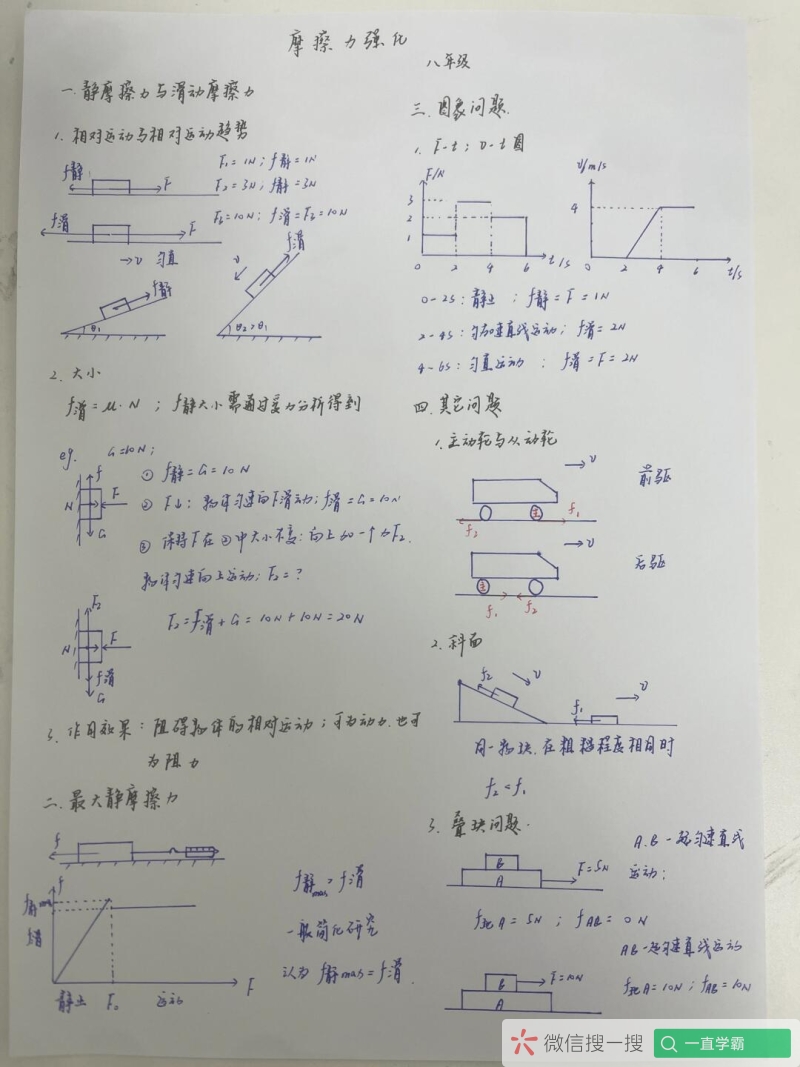 摩擦力强化
八年级
一.静摩擦力与滑动摩擦力
1. 相对运动与相对运动趋势
f静 F F₁=1N; f静=1N
F₂=3N; f静=3N
f滑 F F₃=10N; f滑=F₃=10N
→υ 匀直
f静 θ₁
υ f滑 θ₂>θ₁
2. 大小
f滑=μ·N ; f静大小需通过受力分析得到
eg. G=10N;
f N F G
① f静=G=10N
② F↓: 物体匀速向下滑动; f滑=G=10N
③ 保持F在②中大小不变: 向上加一个力F₂.
物体匀速向上运动; F₂=?
F₂ N F f滑 G
F₂=f滑+G=10N+10N=20N
3. 作用效果: 阻碍物体的相对运动; 可为动力.也可
为阻力
二.最大静摩擦力
f
f
f静max
f滑
静止 F₀ 运动 F
f静max>f滑
一般简化研究
认为 f静max=f滑.
三.图象问题.
1. F-t; υ-t图
F/N
3
2
1
0 2 4 6 t/s
υ/m/s
4
0 2 4 6 t/s
0-2s: 静止 ; f静=F=1N
2-4s: 匀加速直线运动; f滑=2N
4-6s: 匀直运动 ; f滑=F=2N
四.其它问题
1.主动轮与从动轮
υ 前驱
主 f₂ f₁
υ 后驱
主 f₁ f₂
2. 斜面
f₂ υ
f₁ υ
同一物块.在粗糙程度相同时
f₂=f₁
3. 叠块问题.
B A F=5N
A.B一起匀速直线
运动;
f地A=5N ; fAB=0N
AB一起匀速直线运动
B A F=10N
f地A=10N; fAB=10N
微信搜一搜 一直学霸